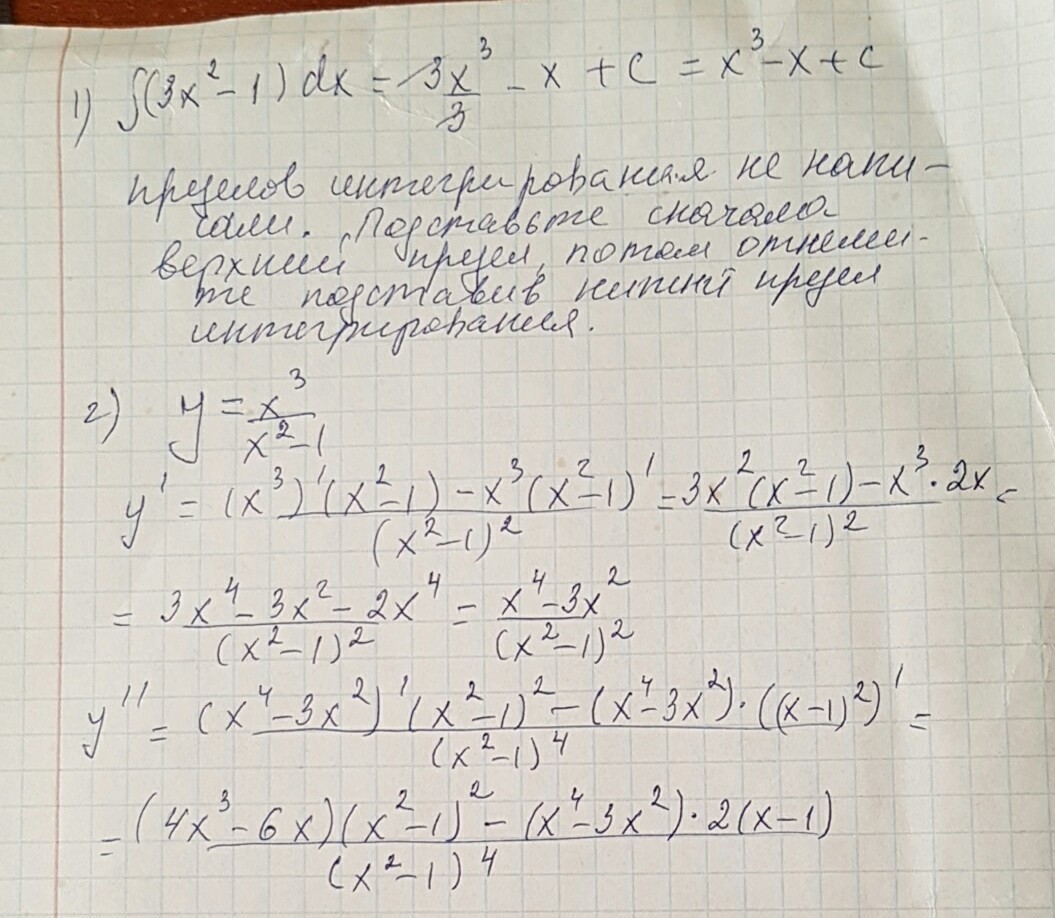 1) ∫(3x² - 1) dx = 3x³/3 - x + c = x³ - x + c
пределов интегрирования не напи-
сали. Подставьте сначала
верхний предел, потом отнеми-
те подставив нижний предел
интегрирования.
2) y = x³/(x² - 1)
y' = ((x³)'(x² - 1) - x³(x² - 1)')/(x² - 1)² = (3x²(x² - 1) - x³ · 2x)/(x² - 1)² =
= (3x⁴ - 3x² - 2x⁴)/(x² - 1)² = (x⁴ - 3x²)/(x² - 1)²
y'' = ((x⁴ - 3x²)'(x² - 1)² - (x⁴ - 3x²) · ((x - 1)²)')/(x² - 1)⁴ =
= ((4x³ - 6x)(x² - 1)² - (x⁴ - 3x²) · 2(x - 1))/(x² - 1)⁴